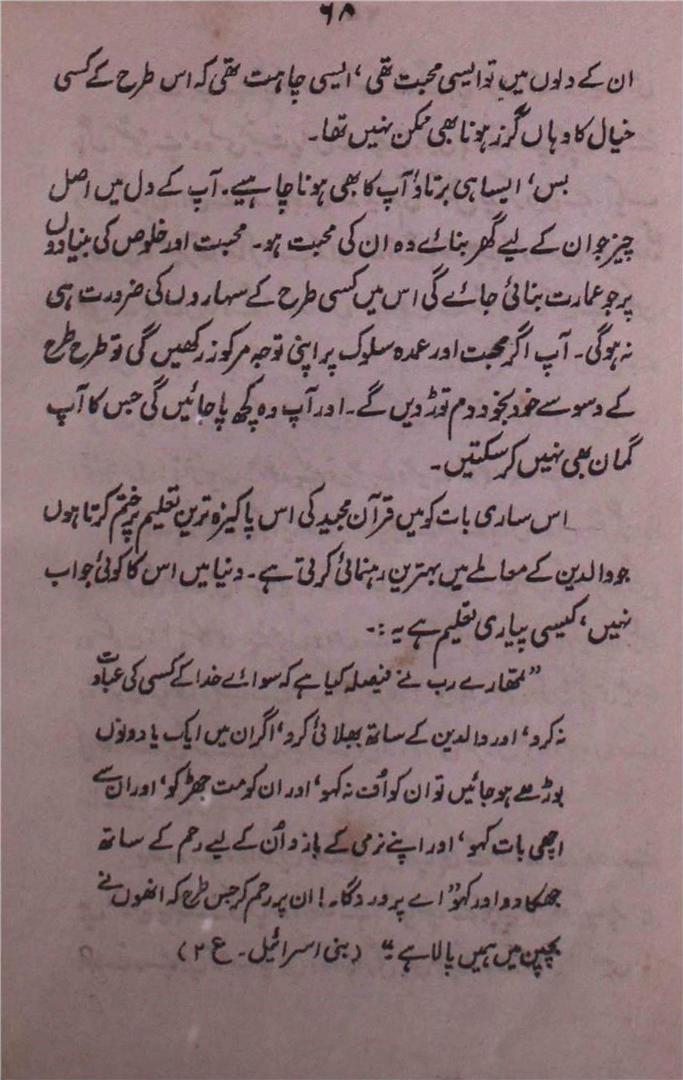 ۶۸
ان کے دلوں میں تو ایسی محبت تھی، ایسی چاہت تھی کہ اس طرح کے کسی
خیال کا وہاں گزر ہونا بھی ممکن نہیں تھا۔
بس، ایسا ہی برتاؤ آپ کا بھی ہونا چاہیے۔ آپ کے دل میں اصل
چیز جو ان کے لیے گھر بنائے وہ ان کی محبت ہو۔ محبت اور خلوص کی بنیادوں
پر جو عمارت بنائی جائے گی اس میں کسی طرح کے سہاروں کی ضرورت ہی
نہ ہوگی۔ آپ اگر محبت اور عمدہ سلوک پر اپنی توجہ مرکوز رکھیں گی تو طرح طرح
کے وسوسے خود بخود دم توڑ دیں گے۔ اور آپ وہ کچھ پا جائیں گی جس کا آپ
گمان بھی نہیں کر سکتیں۔
اس ساری بات کو میں قرآن مجید کی اس پاکیزہ ترین تعلیم پر ختم کرتا ہوں
جو والدین کے معاملے میں بہترین رہنمائی کرتی ہے۔ دنیا میں اس کا کوئی جواب
نہیں، کیسی پیاری تعلیم ہے یہ :۔
”تمھارے رب نے فیصلہ کیا ہے کہ سوائے خدا کے کسی کی عبادت
نہ کرو، اور والدین کے ساتھ بھلائی کرو، اگر ان میں ایک یا دونوں
بوڑھے ہو جائیں تو ان کو اُف نہ کہو، اور ان کو مت جھڑکو، اور ان سے
اچھی بات کہو، اور اپنے نرمی کے بازو اُن کے لیے رحم کے ساتھ
جھکا دو اور کہو ”اے پروردگار! ان پر رحم کر جس طرح کہ انھوں نے
بچپن میں ہمیں پالا ہے“ (بنی اسرائیل۔ ع ۲)